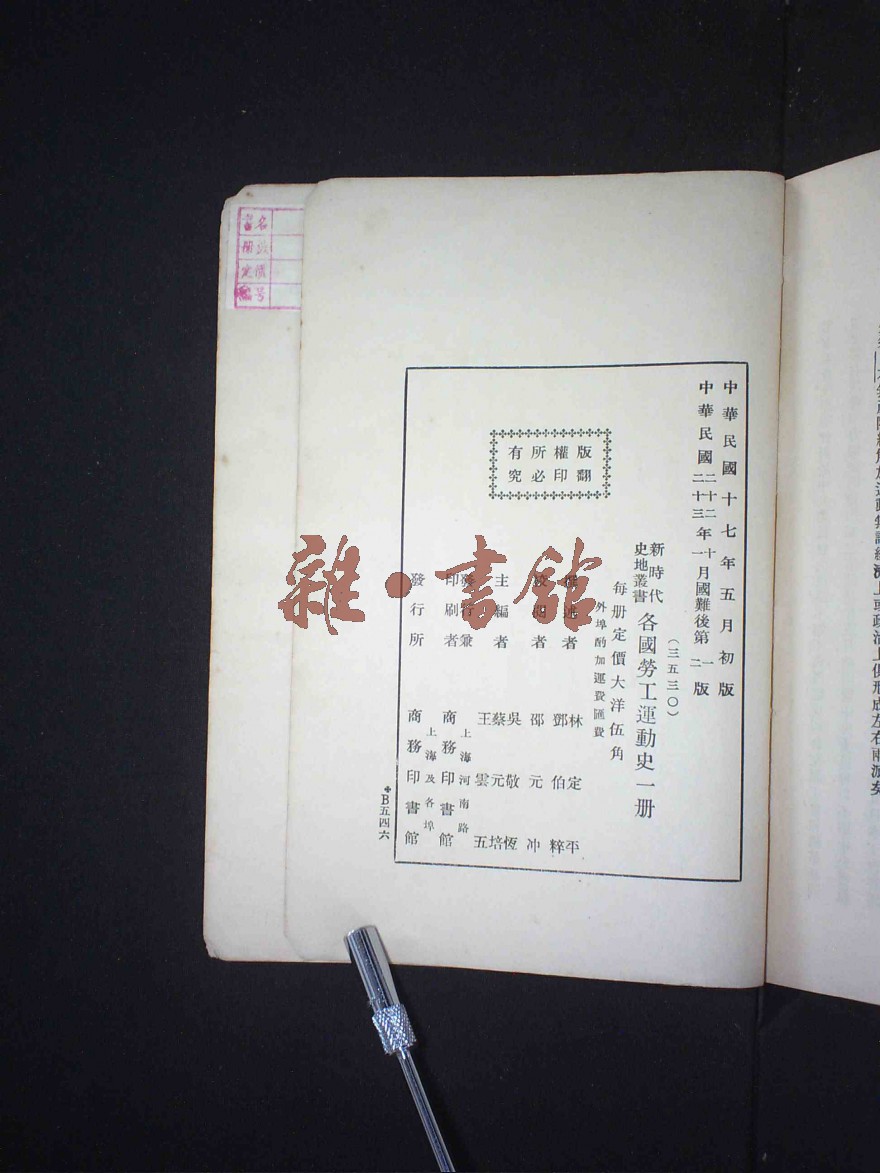 中華民國十七年五月初版
中華民國二十二年十月國難後第一版
二十三年一月國難後第二版
(三五三〇)
新時代史地叢書
各國勞工運動史一册
每册定價大洋伍角
外埠酌加運費匯費
版權所有
翻印必究
述者 林定平
鄧伯粹
者 邵元冲
主編者 吳敬恆
蔡元培
王雲五
發行兼印刷者 上海河南路
商務印書館
發行所 上海及各埠
商務印書館
B五四六
書名
册數
定價
號
雜·書館